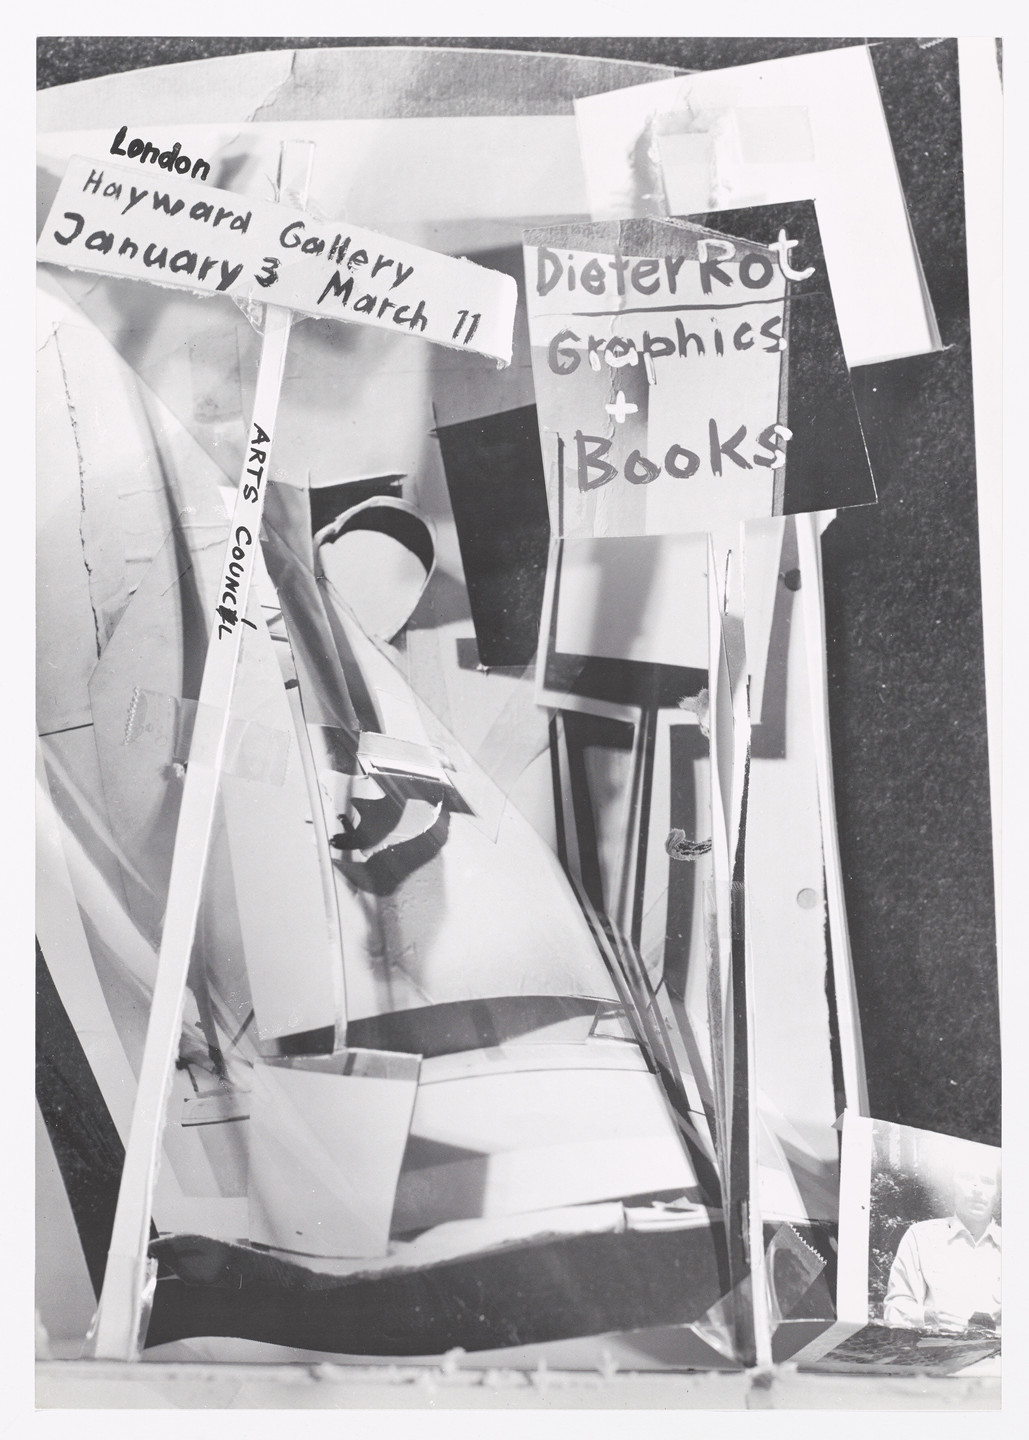 London
Hayward Gallery
January 3 March 11
ARTS COUNCIL
Dieter Rot
Graphics
+
Books